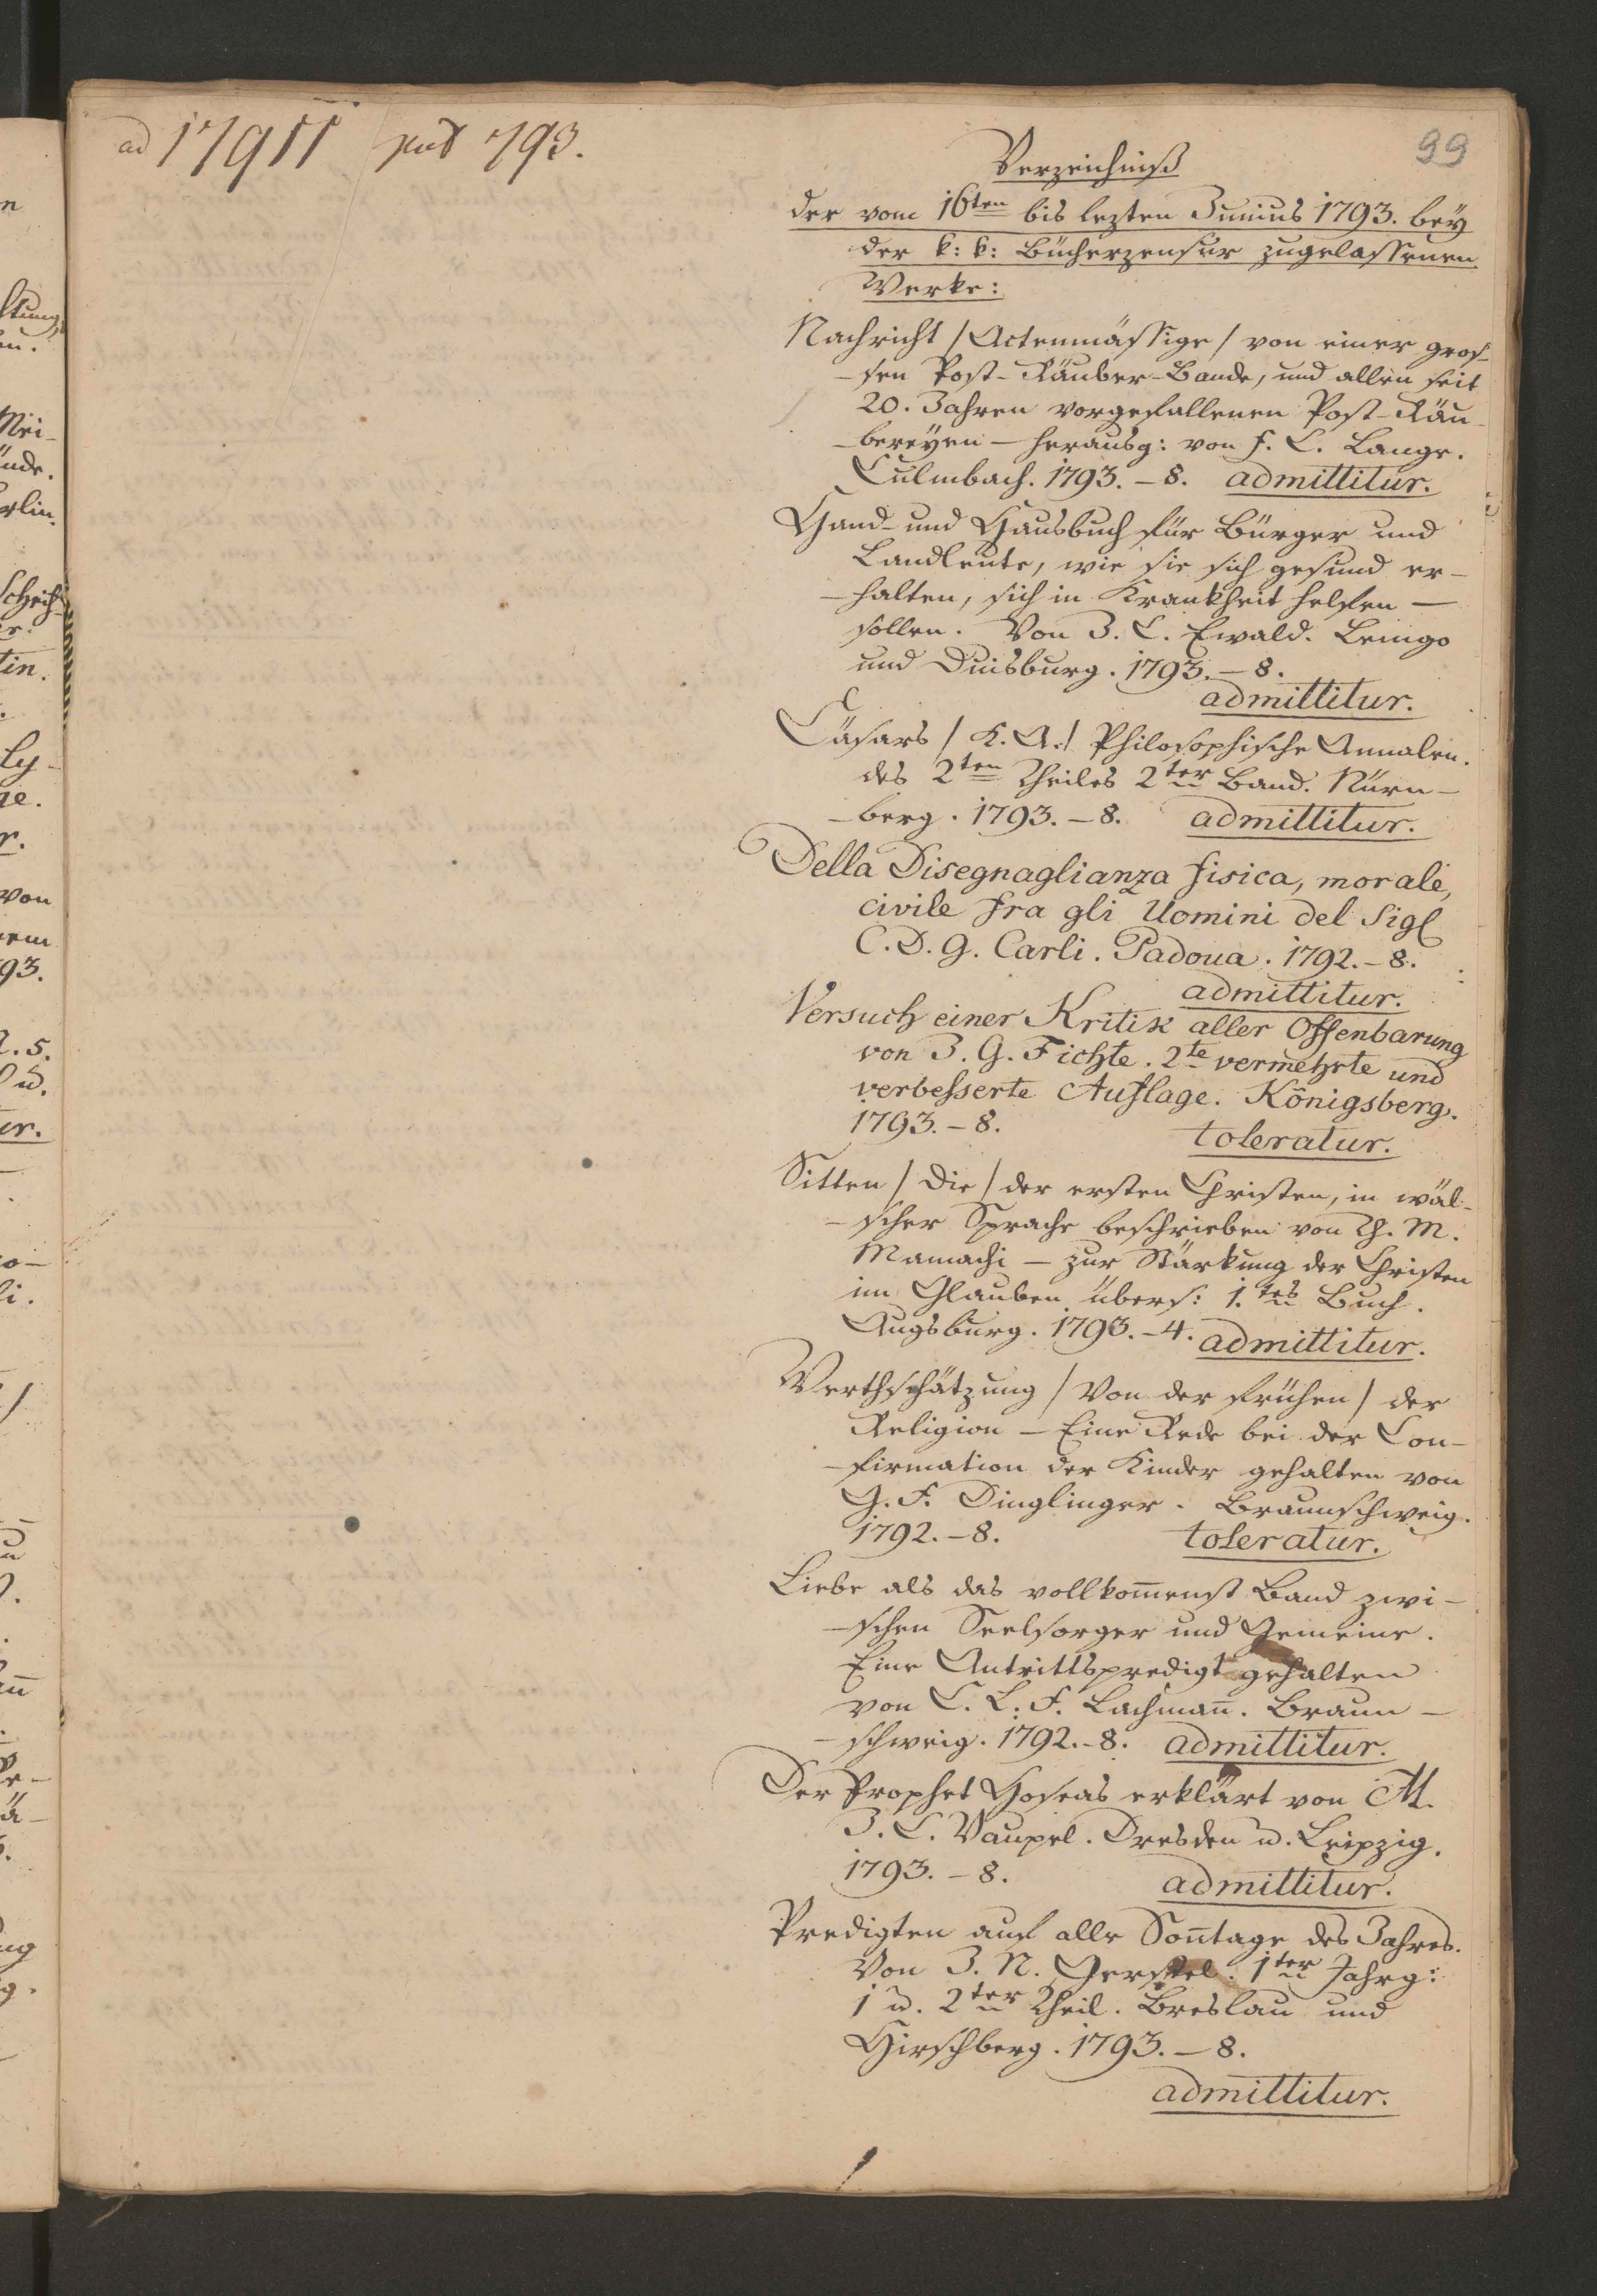 ad 17911 793.
99
Verzeichniß
der vom 16ten bis lezten Junius 1793. bey
der k: k: Bücherzensur zugelassenen
Werke:
Nachricht / Actenmässige / von einer gros-
-sen Post-Räuber-Bande, und allen seit
20. Jahren vorgefallenen Post-Räu-
-bereyen – herausg: von F. C. Lange.
Culmbach. 1793. – 8. admittitur.
Hand- und Hausbuch für Bürger und
Landleute, wie sie sich gesund er-
-halten, sich in Krankheit helfen –
sollen. Von J. L. Ewald. Lemgo
und Duisburg. 1793. – 8.
admittitur.
Cäsars / K. A. / Philosophische Annalen.
des 2ten Theiles 2ter Band. Nürn-
-berg. 1793. – 8. admittitur.
Della Disegnaglianza fisica, morale,
civile fra gli Uomini del Sigl
C. D. G. Carli. Padoua. 1792. – 8.
admittitur.
Versuch einer Kritik aller Offenbarung
von J. G. Fichte. 2te vermehrte und
verbesserte Auflage. Königsberg.
1793. – 8. toleratur.
Sitten / Die / der ersten Christen, in wäl-
-scher Sprache beschrieben von Th. M.
Mamachi – zur Stärkung der Christen
im Glauben übers: 1.tes Buch.
Augsburg. 1793. – 4. admittitur.
Werthschätzung / Von der frühen / der
Religion – Eine Rede bei der Con-
-firmation der Kinder gehalten von
G. F. Dinglinger. Braunschweig.
1792. – 8. toleratur.
Liebe als das vollkom̅enst Band zwi-
-schen Seelsorger und Gemeine.
Eine Antrittspredigt gehalten
von C. L. F. Lachman̅. Braun-
-schweig. 1792. – 8. admittitur.
Der Prophet Hoseas erklärt von M.
J. C. Vaupel. Dresden u. Leipzig.
1793. – 8. admittitur.
Predigten auf alle Son̅tage des Jahres.
Von J. N. Gerstel. 1ter Jahrg:
1 u. 2ter Theil. Breslau und
Hirschberg. 1793. – 8.
admittitur.